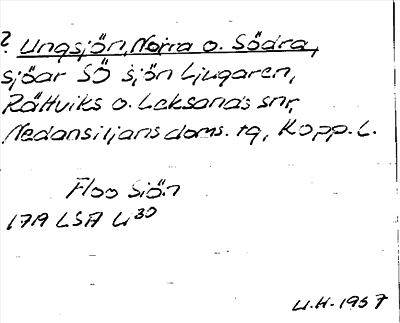 ? Ungsjön, Norra o. Södra,
sjöar SÖ sjön Ljugaren,
Rättviks o. Leksands snr,
Nedansiljans doms. tg, Kopp. l.
Floo Siön
1719 LSA U 30
U.H. 1957